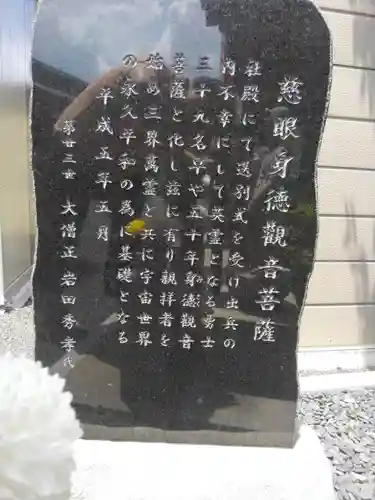 慈眼身徳觀音菩薩
社殿にて送別式を受け出兵の
内不幸にして英霊となる勇士
三十九名早や五十年身徳觀音
菩薩と化し茲に有り親拝者を
始め三界萬霊と共に宇宙世界
の永久平和の為に基礎となる
平成五年五月
第廿三世 大僧正 岩田秀孝代